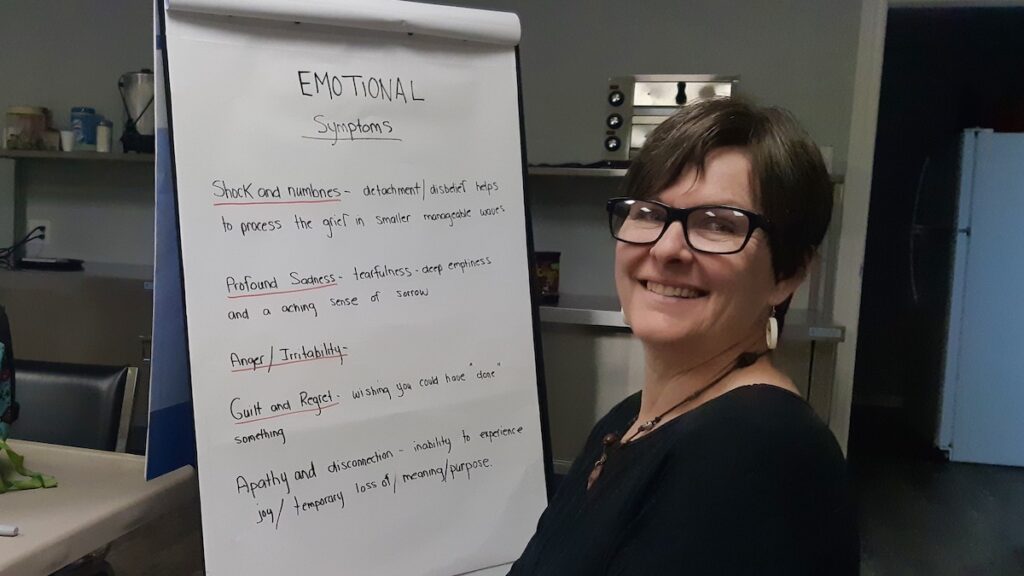 EMOTIONAL
Symptoms
Shock and numbnes - detachment/disbelief helps
to process the grief in smaller manageable waves
Profound Sadness - tearfulness - deep emptiness
and a aching sense of sorrow
Anger/Irritability-
Guilt and Regret - wishing you could have "done"
something
Apathy and disconnection - inability to experience
joy/ temporary loss of/meaning/purpose.